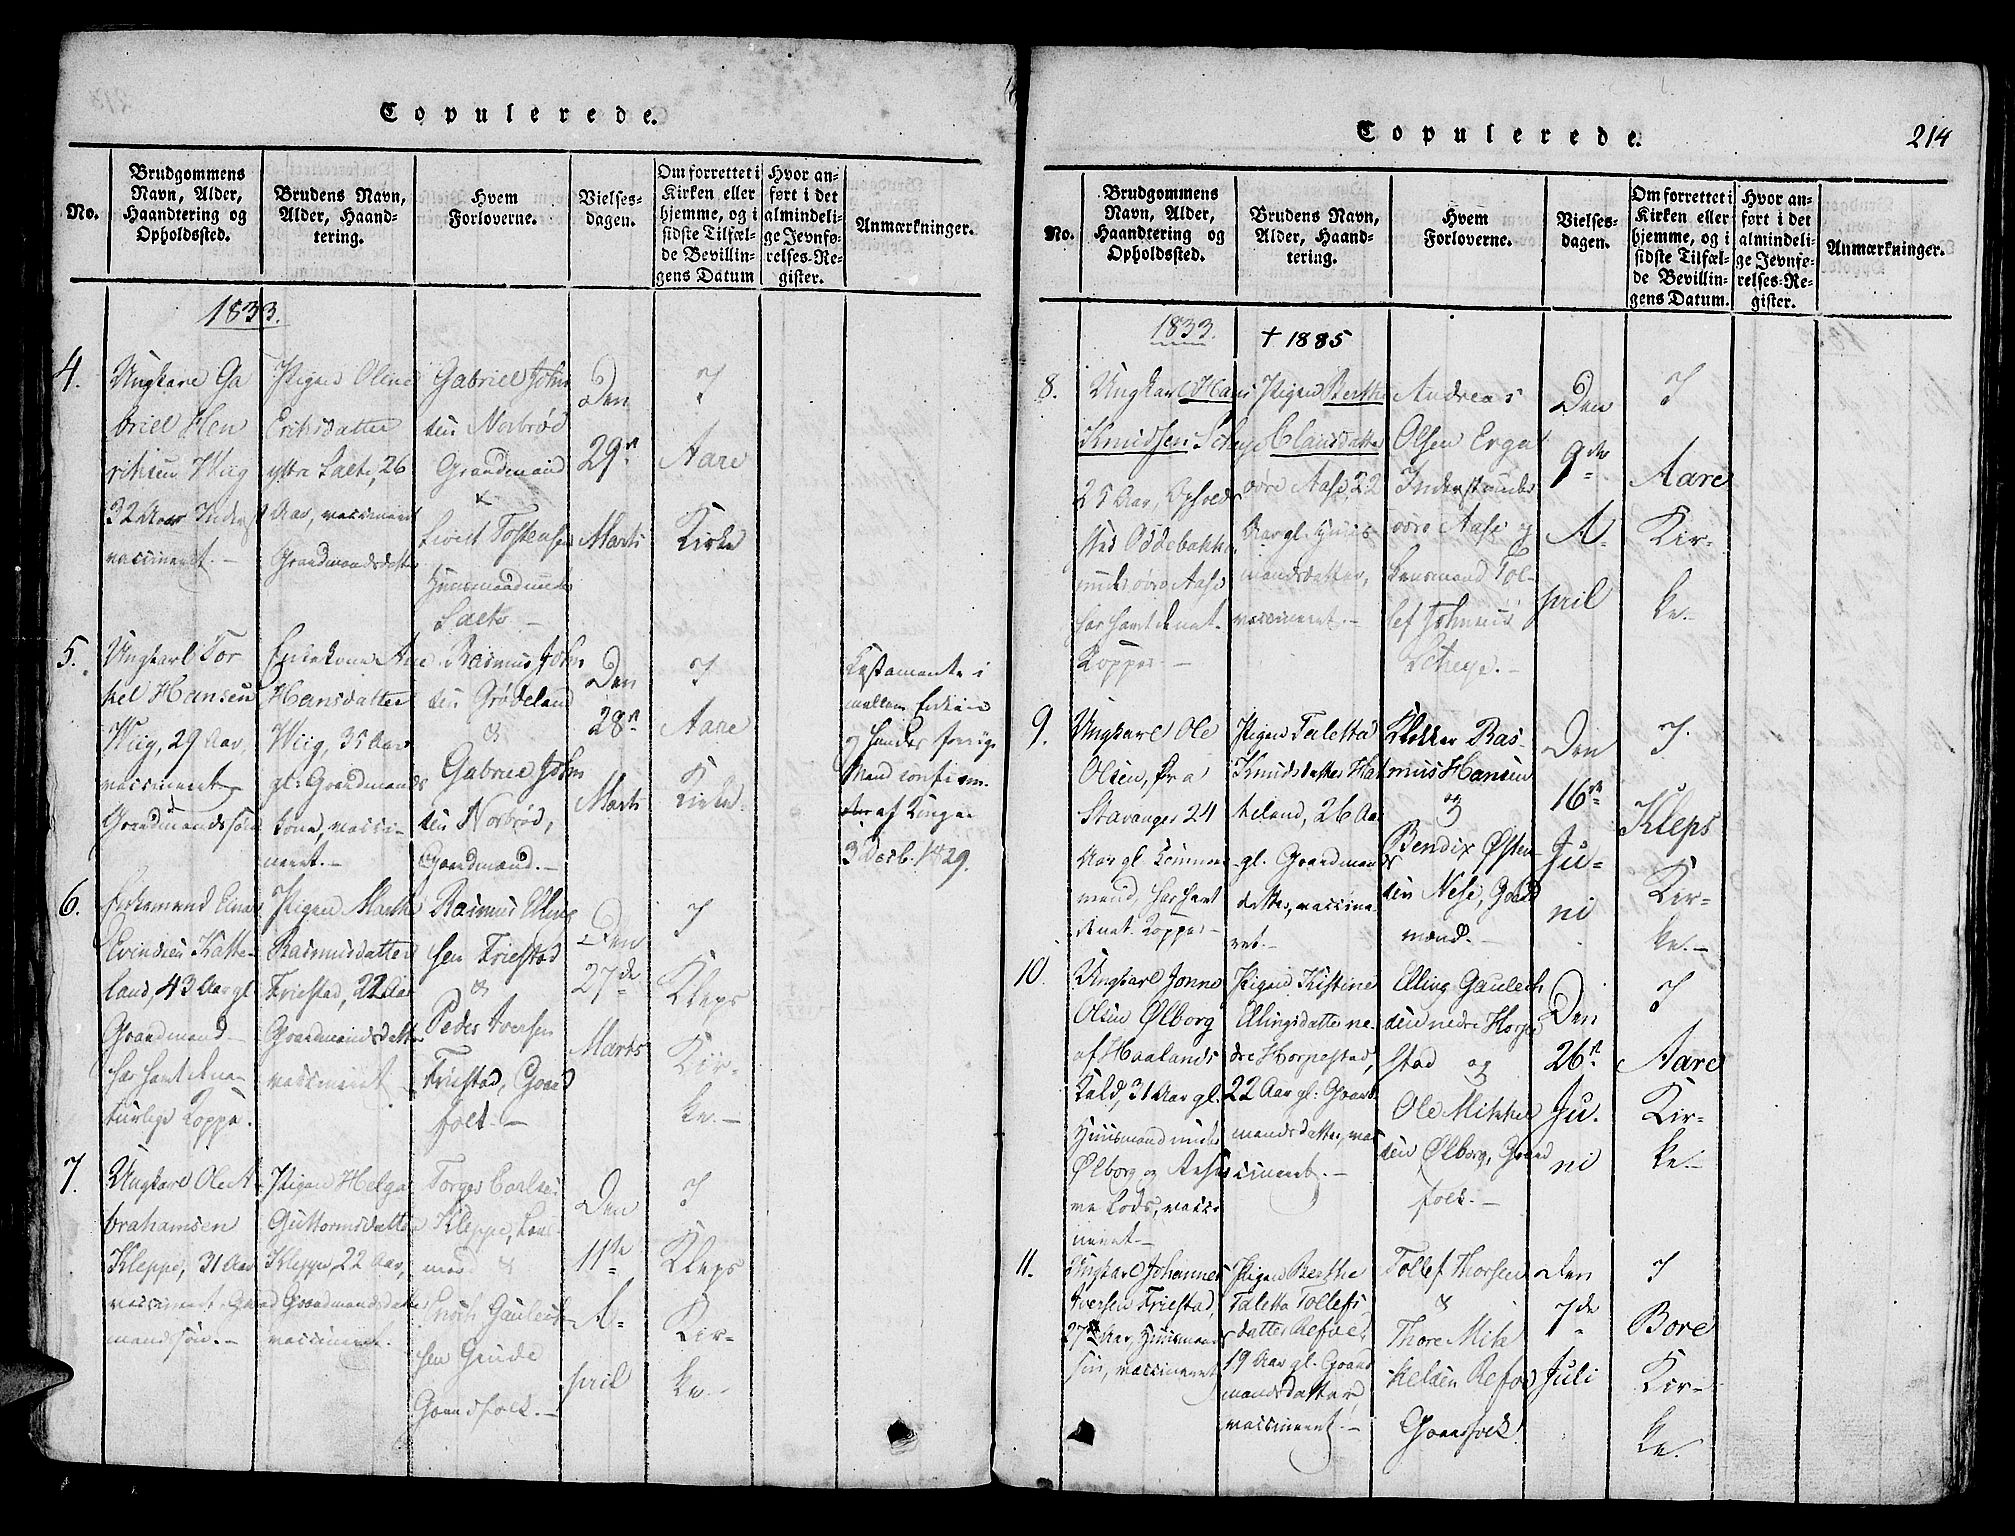 Copulerede.
No.
Brudgommens
Navn, Alder,
Haandtering og
Opholdssted.
Brudens Navn,
Alder, Haand-
tering.
Hvem
Forloverne.
Vielses-
dagen.
Om forrettet i
Kirken eller
hjemme, og i
sidste Tilfæl-
de Bevillin-
gens Datum
Hvor an-
ført i det
almindeli-
ge Jevnfø-
relses-Re-
gister.
Anmærkninger.
1833.
4.
Ungkarl Ga
briel Hen
richsen Wiig
32 Aar
vaccineret.-
Pigen Oline
Erichsdatter
26
Aar, vaccineret
Gaardmandsdatter
Gabriel John
sen Norbrød
Gaardmand
&
Tostensen
Huusmand under
Saeto -
Den
29de
Marts
I
Aare
Kirke
5.
Ungkarl Tor
kel Hansen
Wiig, 29 Aar,
vaccineret
Gaardmandssøn
Enkekone Ane
Hansdatter
Wiig, 35 Aar
gl: Gaardmands
kone, vacci-
neret.-
Rasmus John
sen Grødeland
&
Gabriel John
sen Norbrød,
Gaardmænd.-
Den
28de
Marts
I
Aare
Kirke.
Testamente i
mellem Enken
og hendes forrige
Mand confirm.
af Kongen
3 Decb. 1829.
6.
Enkemand Einar
Evindsen Katte-
land, 43 Aar gl
Gaardmand
har havt de na-
turlige Kopper.
Pigen Marthe
Rasmusdatter
Friestad, 22 Aar
Gaardmandsdatter
vaccineret
Rasmus Elling
sen Friestad
&
Peder Iversen
Friestad, Gaard
folk.-
Den
27de
Marts
I
Kleps
Kir-
ke.-
7.
Ungkarl Ole A-
brahamsen
Kleppe, 31 Aar
vaccineret, Gaard
mandssøn.-
Pigen Helga
Guttormsdatter
Kleppe, 22 Aar,
Gaardmandsdatter
vaccineret.
Torger Carlsen
Kleppe, Lens-
mand &
Enoch Gauleik-
sen Giude
Gaardfolk.-
Den
11te
A-
pril
I
Kleps
Kir-
ke.-
Copulerede.
214
No.
Brudgommens
Navn, Alder,
Haandtering og
Opholdssted.
Brudens Navn,
Alder, Haand-
tering.
Hvem
Forloverne.
Vielses-
dagen.
Om forrettet i
Kirken eller
hjemme, og i
sidste Tilfæl-
de Bevillin-
gens Datum.
Hvor an-
ført i det
almindeli-
ge Jevnfø-
relses-Re-
gister.
Anmærkninger.
1833.
† 1885
8.
Ungkarl Hans
Knudsen Scheje
25 Aar, Opholds
sted Oddebakken
under øvre Aase
har havt de nat.
Kopper -
Pigen Berthe
Clausdatter
øvre Aase 22
Aar gl. Huus-
mandsdatter,
vaccineret.-
Andreas
Olsen Erga
øvre Aase og
Lensmand Tol-
lef Johnsen
Scheje.-
Den
9de
A-
pril
I
Aare
Kir-
ke.-
9.
Ungkarl Ole
Olsen, fra
Stavanger 24
Aar gl. Tømmer
mand, har havt
de nat. Kopper -
Pigen Taletta
Knudsdatter Hat
teland, 26 Aar
gl. Gaardmands
datter, vaccine-
ret.-
Klokker Ras-
mus Hansen
og
Bendix Østen
sen Nese, Gaard
mænd.-
Den
16de
Ju-
ni
I.
Kleps
Kir-
ke.-
10.
Ungkarl Jonne
Olsen Ølborg
af Haalands
Kald, 31 Aar gl.
Huusmand under
Ølborg og
Lods, vacci
neret-
Pigen Kistine
Ellingsdatter ne-
dre Horpestad,
22 Aar gl: Gaard
mandsdatter, vac
cineret.-
Elling Gauleik
sen nedre Horpe
stad og
Ole Mikkel
sen Ølborg, Gaard
folk.-
Den
26de
Ju-
ni
I
Aare
Kir-
ke.-
11.
Ungkarl Johannes
Iversen Friestad,
27 Aar, Huusmands
søn, vaccineret
Pigen Berthe
Taletta Tollefs
datter Refsnes
19 Aar gl. Gaard
mandsdatter,
vaccineret.-
Tollef Thorsen
&
Thore Mik
kelsen Refsnes
Gaardfolk
Den
7de
Juli
I
Bore
Kir-
ke.